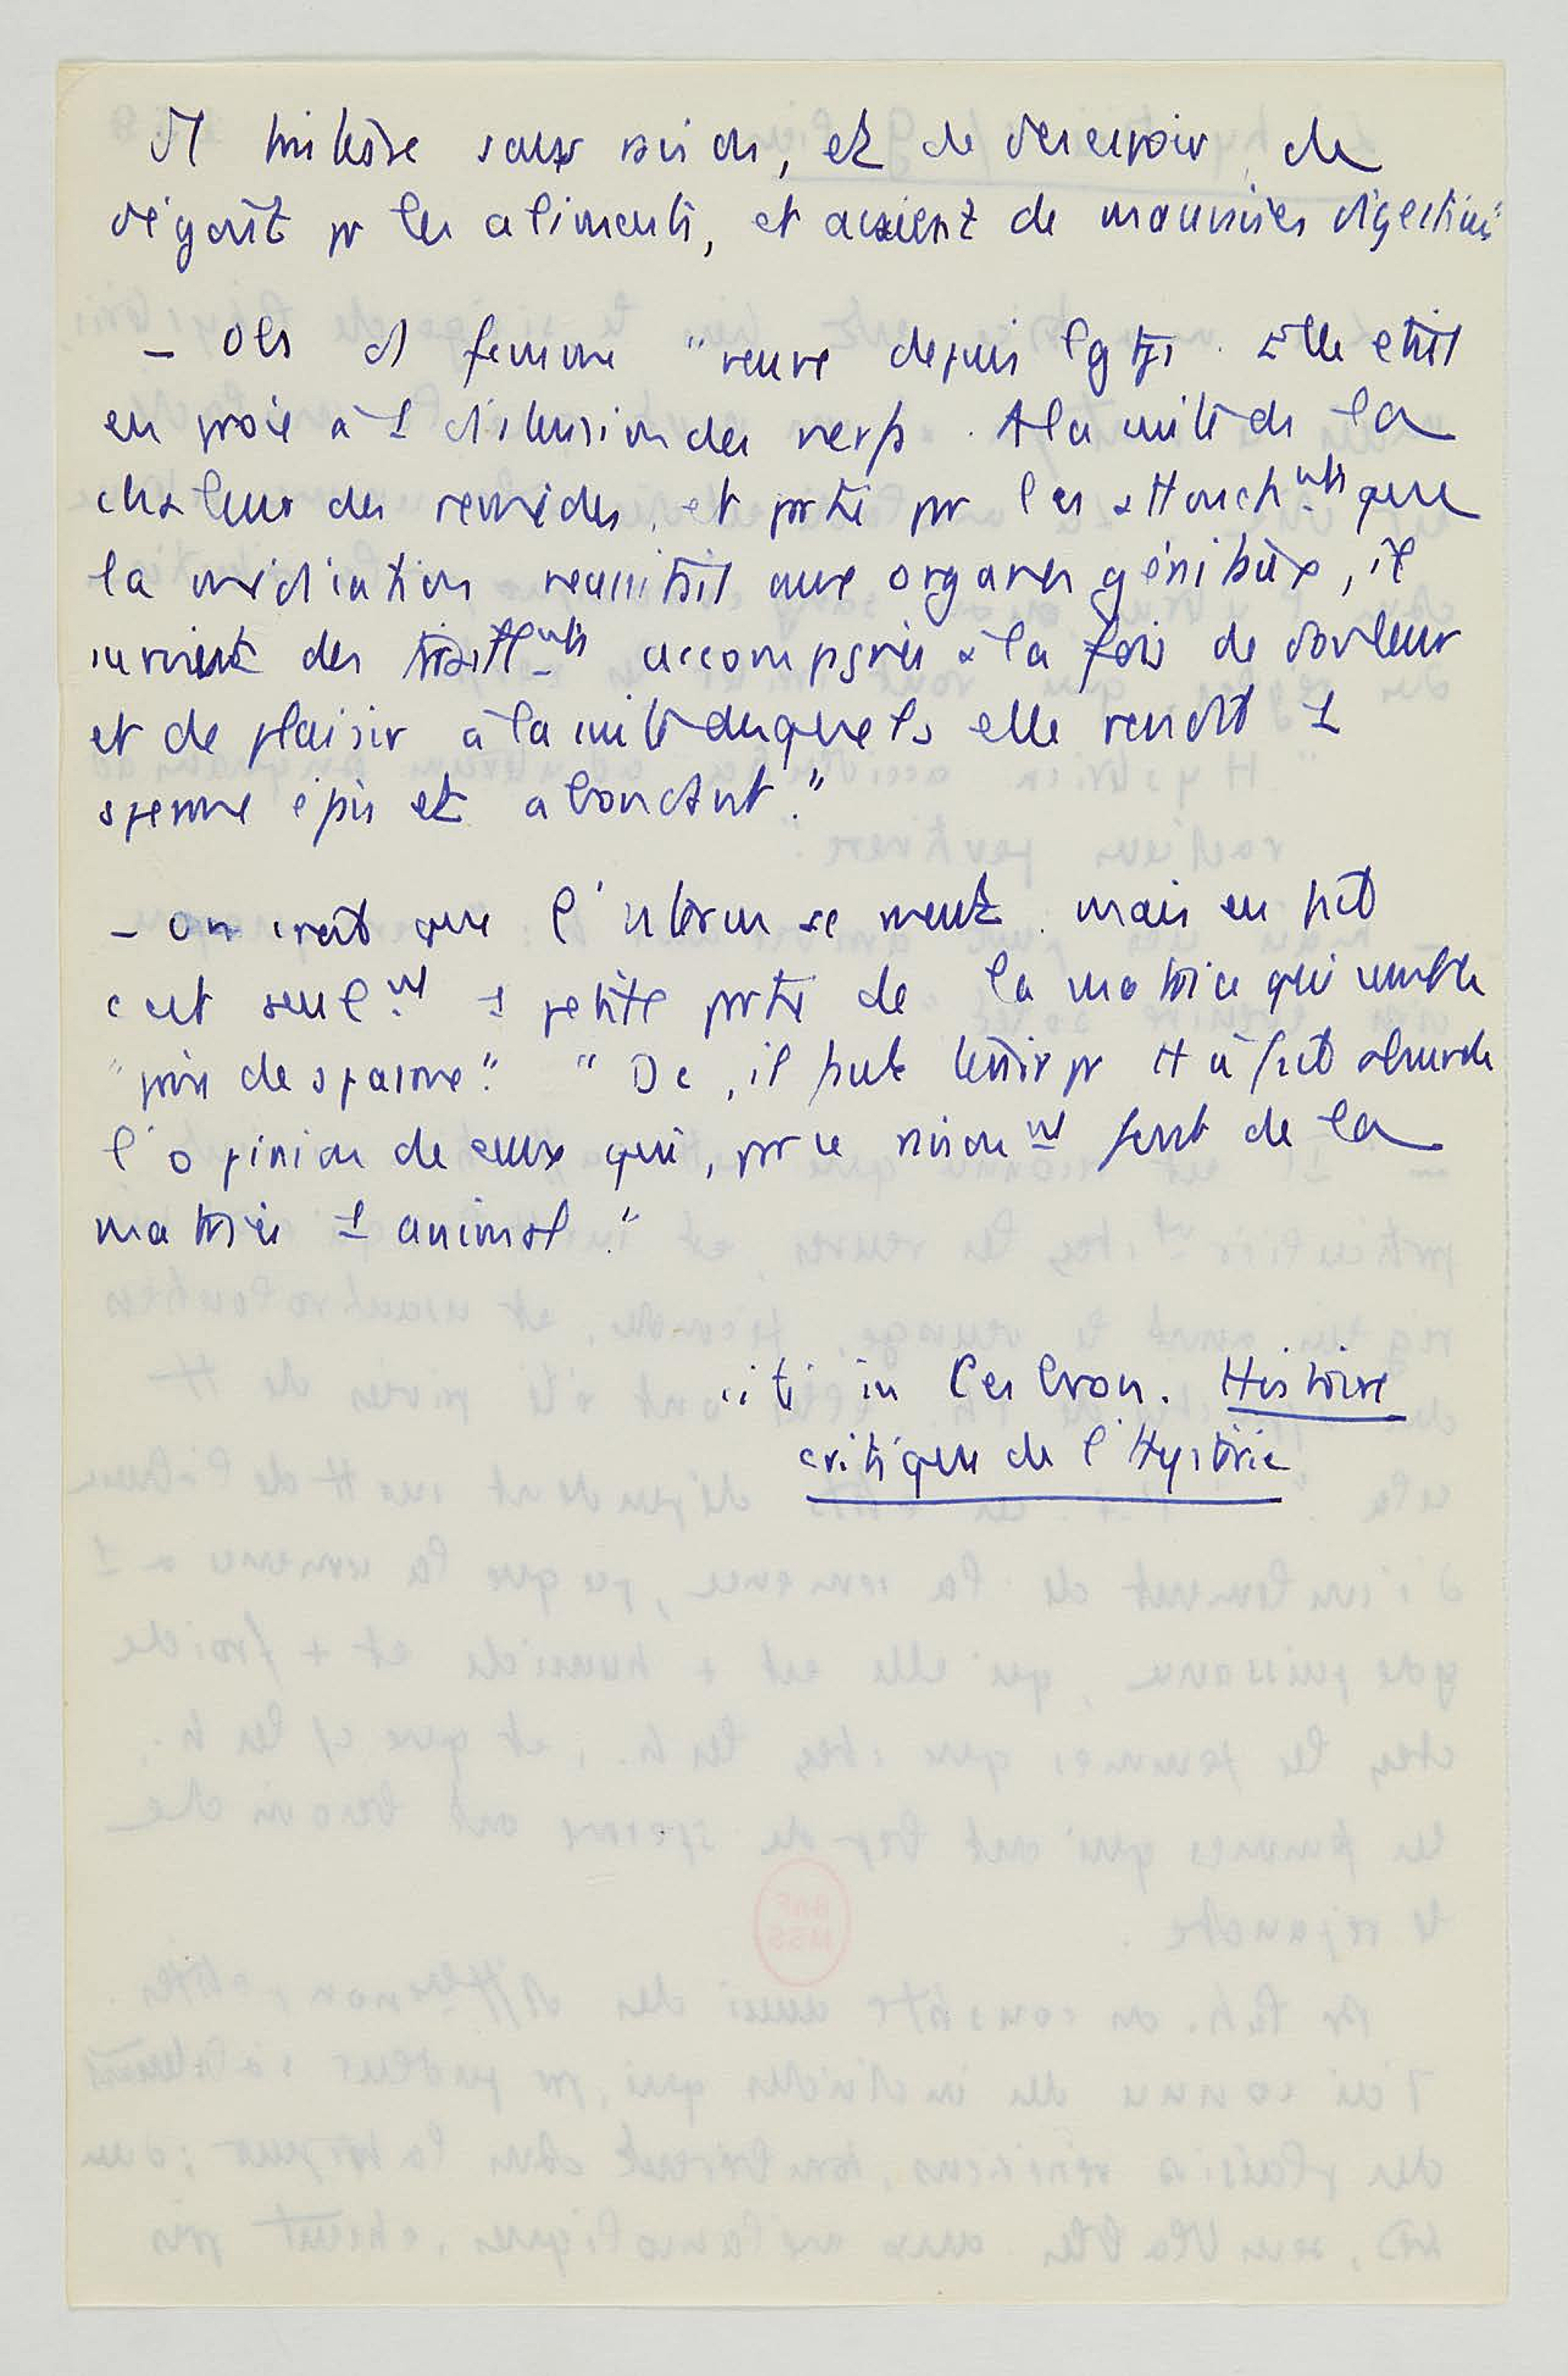 d tristesse sans raison, et de désespoir, de
dégoût pr les aliments, et avaient de mauvaises digestions"
- Obs d femme "veuve depuis lgtps. Elle était
en proie à 1 distension des nerfs. A la suite de la
chaleur des remèdes, et partie pr les attouchnts que
la médication nécessitait aux organes génitaux, il
survient des accompagnés à la fois de douleur
et de plaisir à la suite desquels elle rendit 1
sperme épais et abondant."
- on croit que l'uterus se meut. mais en fait
c'est seulnt 1 petite partie de la matrice qui semble
"prise de spasme". "Dc, il faut tenir pr tt à fait absurde
l'opinion de ceux qui, par ce raisonnt font de la
matrice 1 animal."
cité in Cesbron. Histoire
critique de l'Hystérie
BnF
MSS